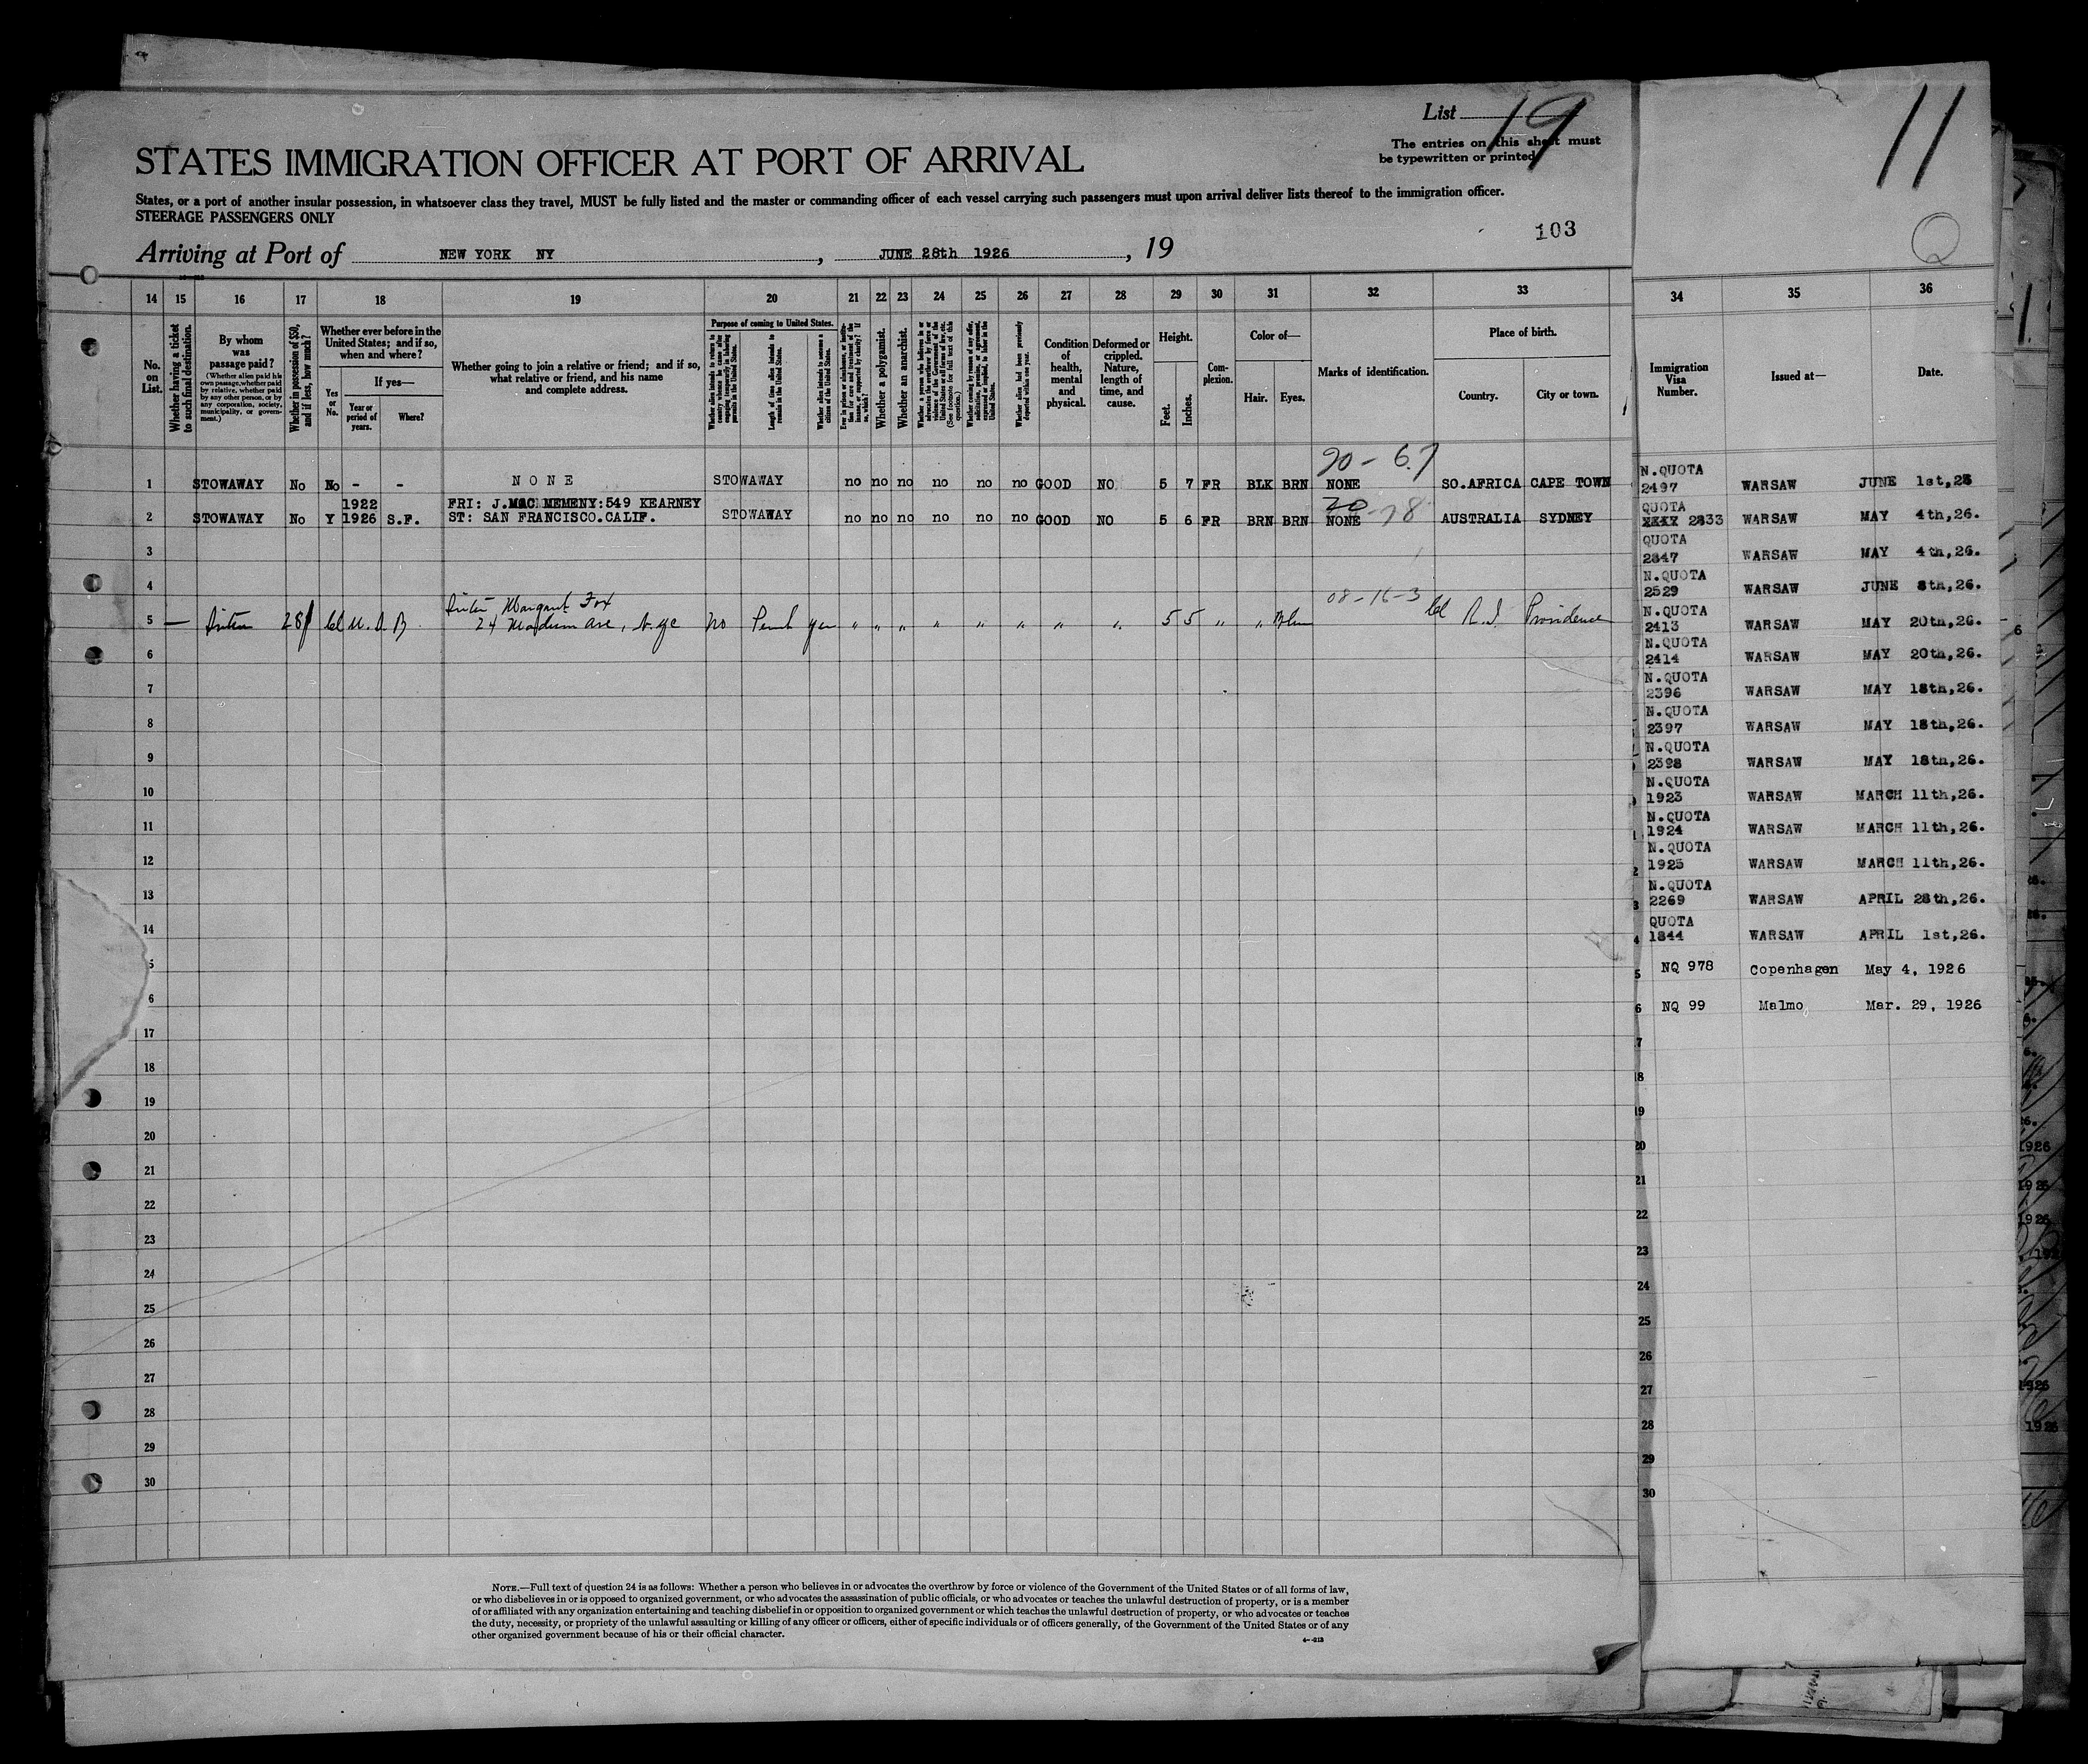 List 19
The entries on this sheet must
be typewritten or printed
11
STATES IMMIGRATION OFFICER AT PORT OF ARRIVAL
States, or a port of another insular possession, in whatsoever class they travel, MUST be fully listed and the master or commanding officer of each vessel carrying such passengers must upon arrival deliver lists thereof to the immigration officer.
STEERAGE PASSENGERS ONLY
103
Arriving at Port of NEW YORK NY, JUNE 28th 1926, 19
14 15 16 17 18 19 20 21 22 23 24 25 26 27 28 29 30 31 32 33
34 35 36
No. on List.
Whether having a ticket to such final destination.
By whom was passage paid?
(Whether alien paid his own passage, whether paid by relative, whether paid by any other person, or by any corporation, society, municipality, or government.)
Whether in possession of $50, and if less, how much?
Whether ever before in the United States; and if so, when and where?
Yes or No.
If yes—
Year or period of years.
Where?
Whether going to join a relative or friend; and if so, what relative or friend, and his name and complete address.
Purpose of coming to United States.
Length of time alien intends to remain in the United States.
Whether alien intends to become a citizen of the United States.
Whether a polygamist.
Whether an anarchist.
Condition of health, mental and physical.
Deformed or crippled. Nature, length of time, and cause.
Height.
Feet.
Inches.
Complexion.
Color of—
Hair.
Eyes.
Marks of identification.
Place of birth.
Country.
City or town.
Immigration Visa Number.
Issued at—
Date.
1 STOWAWAY No No - - NONE STOWAWAY no no no no no no GOOD NO 5 7 FR BLK BRN NONE SO.AFRICA CAPE TOWN
2 STOWAWAY No Y 1922 1926 S.F. FRI: J.MAC MEMENY:549 KEARNEY
ST: SAN FRANCISCO.CALIF. STOWAWAY no no no no no no GOOD NO 5 6 FR BRN BRN NONE AUSTRALIA SYDNEY
3
4
5 — 28 Margaret Fox
24 no yes " " " " " " " " 5 5 " " 08-16-3 R.I. Providence
6
7
8
9
10
11
12
13
14
5
6
17
18
19
20
21
22
23
24
25
26
27
28
29
30
N.QUOTA
2497 WARSAW JUNE 1st,26
QUOTA
2833 WARSAW MAY 4th,26.
QUOTA
2847 WARSAW MAY 4th,26.
N.QUOTA
2529 WARSAW JUNE 8th,26.
N.QUOTA
2413 WARSAW MAY 20th,26.
N.QUOTA
2414 WARSAW MAY 20th,26.
N.QUOTA
2396 WARSAW MAY 18th,26.
N.QUOTA
2397 WARSAW MAY 18th,26.
N.QUOTA
2398 WARSAW MAY 18th,26.
N.QUOTA
1923 WARSAW MARCH 11th,26.
N.QUOTA
1924 WARSAW MARCH 11th,26.
N.QUOTA
1925 WARSAW MARCH 11th,26.
N.QUOTA
2269 WARSAW APRIL 28th,26.
QUOTA
1844 WARSAW APRIL 1st,26.
5 NQ 978 Copenhagen May 4, 1926
6 NQ 99 Malmo Mar. 29, 1926
7
18
19
20
21
22
23
24
25
26
27
28
29
30
NOTE.—Full text of question 24 is as follows: Whether a person who believes in or advocates the overthrow by force or violence of the Government of the United States or of all forms of law,
or who disbelieves in or is opposed to organized government, or who advocates the assassination of public officials, or who advocates or teaches the unlawful destruction of property, or is a member
of or affiliated with any organization entertaining and teaching disbelief in or opposition to organized government or which teaches the unlawful destruction of property, or who advocates or teaches
the duty, necessity, or propriety of the unlawful assaulting or killing of any officer or officers, either of specific individuals or of officers generally, of the Government of the United States or of any
other organized government because of his or their official character.